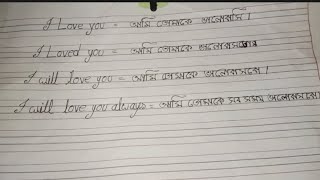 I Love you = আমি তোমাকে ভালোবাসি।
I Loved you = আমি তোমাকে ভালোবাসতাম
I will love you = আমি তোমাকে ভালোবাসবো।
I will love you always = আমি তোমাকে সব সময় ভালোবাসবো।